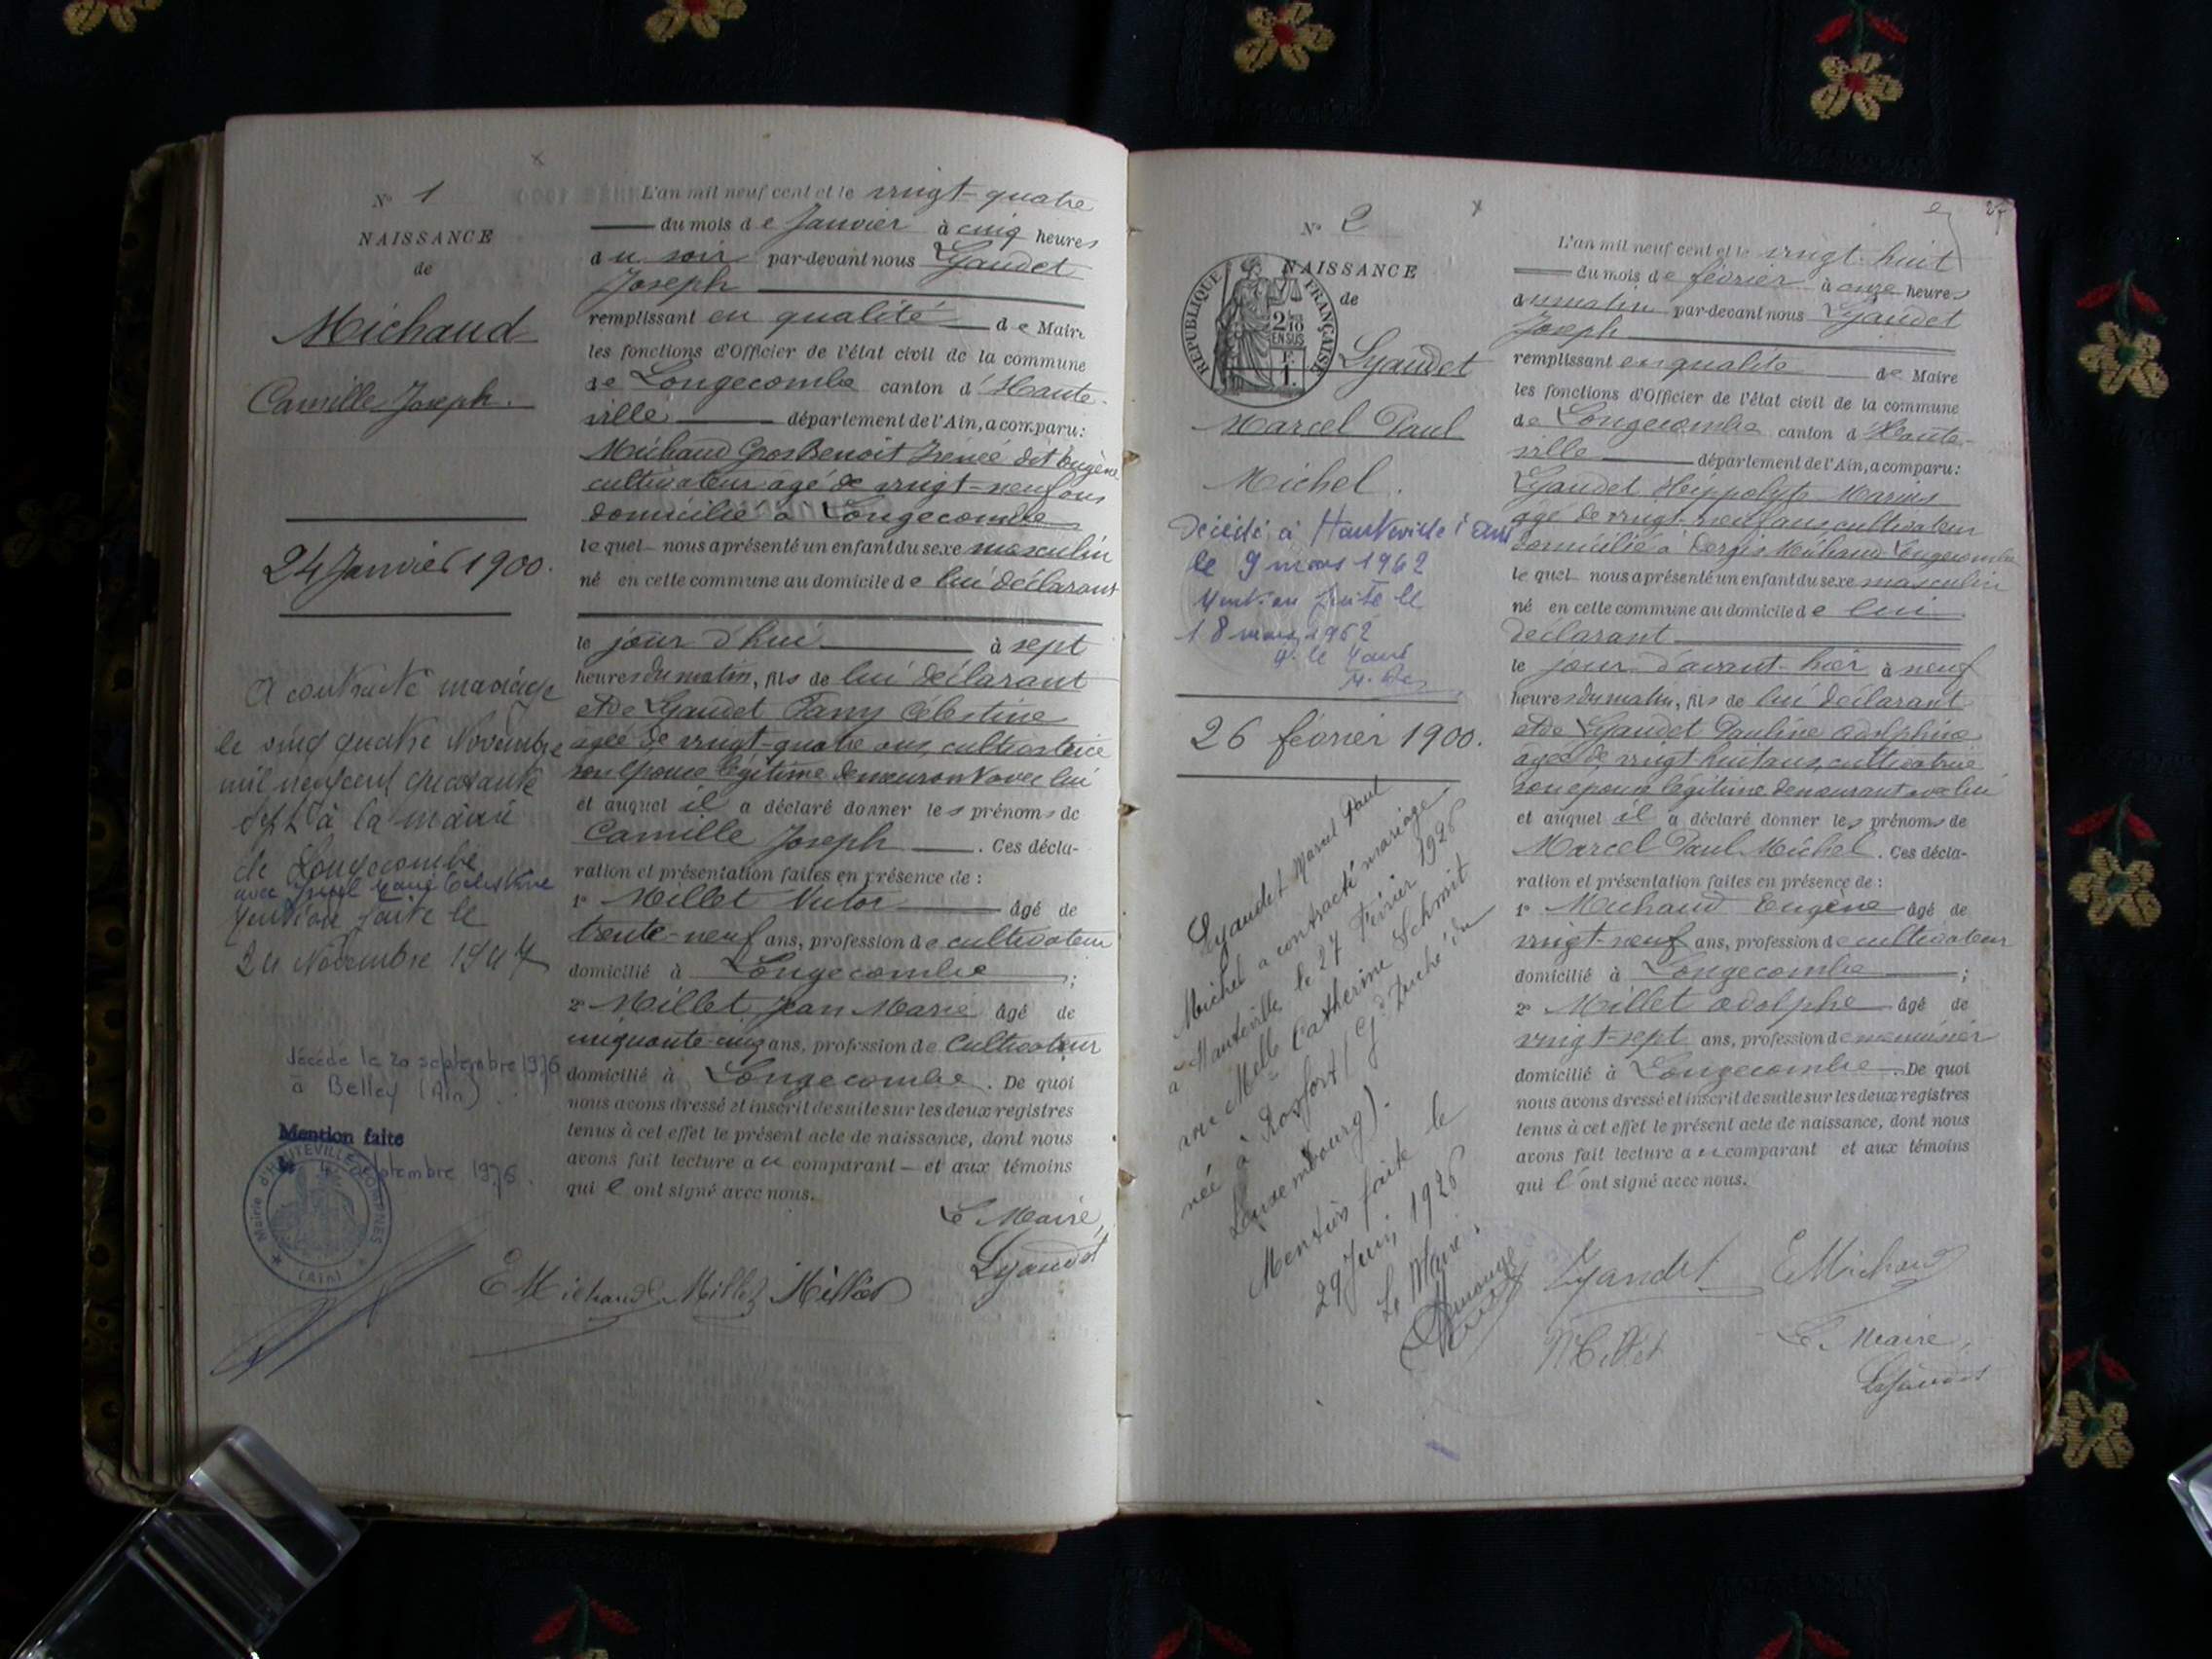 N° 1
NAISSANCE
de
Michaud
Camille Joseph.
24 Janvier 1900.
A contracté mariage
le vingt quatre Novembre
mil neuf cent quarante
sept à la mairie
de Longecombe
avec Célestine
Mention faite le
24 Novembre 1947
décédé le 20 septembre 1976
à Belley (Ain).
Mention faite
septembre 1976.
Mairie d'HAUTEVILLE-LOMPNES
(Ain)
L'an mil neuf cent et le vingt-quatre
du mois de Janvier à cinq heures
du soir par-devant nous Lyaudet
Joseph
remplissant en qualité de Maire
les fonctions d'Officier de l'état civil de la commune
de Longecombe canton d'Haute-
ville département de l'Ain, a comparu:
Michaud Gros Benoit Irénée dit Eugène
cultivateur âgé de vingt-neuf ans
domicilié à Longecombe
lequel nous a présenté un enfant du sexe masculin
né en cette commune au domicile de lui déclarant
le jour d'hui à sept
heures du matin, fils de lui déclarant
et de Lyaudet Fany Célestine
agée de vingt-quatre ans, cultivatrice
son épouse légitime demeurant avec lui
et auquel il a déclaré donner les prénoms de
Camille Joseph. Ces décla-
ration et présentation faites en présence de :
1° Millet Victor âgé de
trente-neuf ans, profession de cultivateur
domicilié à Longecombe ;
2° Millet Jean Marie âgé de
cinquante-cinq ans, profession de cultivateur
domicilié à Longecombe. De quoi
nous avons dressé et inscrit de suite sur les deux registres
tenus à cet effet le présent acte de naissance, dont nous
avons fait lecture au comparant et aux témoins
qui l'ont signé avec nous.
Le Maire,
Lyaudet
E Michaud Millet Millet
N° 2
NAISSANCE
de
REPUBLIQUE FRANÇAISE
2/10
EN SUS
F.
1.
Lyaudet
Marcel Paul
Michel.
Décédé à Hauteville
le 9 mars 1962
Mention faite le
18 mars 1962
26 février 1900.
Lyaudet Marcel Paul
Michel a contracté mariage
à Hauteville le 27 Février 1926
avec Melle Catherine Schmit
née à Rosport (Gd Duché du
Luxembourg).
Mention faite le
29 Juin 1926
Le Maire :
27
L'an mil neuf cent et le vingt-huit
du mois de février à onze heures
du matin par-devant nous Lyaudet
Joseph
remplissant en qualité de Maire
les fonctions d'Officier de l'état civil de la commune
de Longecombe canton d'Haute-
ville département de l'Ain, a comparu:
Lyaudet Hippolyte Marius
âgé de vingt-neuf ans cultivateur
domicilié à Longecombe
lequel nous a présenté un enfant du sexe masculin
né en cette commune au domicile de lui
déclarant
le jour d'avant-hier à neuf
heures du matin, fils de lui déclarant
et de Lyaudet Pauline Adolphine
agée de vingt huit ans, cultivatrice
son épouse légitime demeurant avec lui
et auquel il a déclaré donner les prénoms de
Marcel Paul Michel. Ces décla-
ration et présentation faites en présence de :
1° Michaud Eugène âgé de
vingt-neuf ans, profession de cultivateur
domicilié à Longecombe ;
2° Millet Adolphe âgé de
vingt-sept ans, profession de menuisier
domicilié à Longecombe. De quoi
nous avons dressé et inscrit de suite sur les deux registres
tenus à cet effet le présent acte de naissance, dont nous
avons fait lecture au comparant et aux témoins
qui l'ont signé avec nous.
Lyaudet E Michaud
Millet Le Maire,
Lyaudet